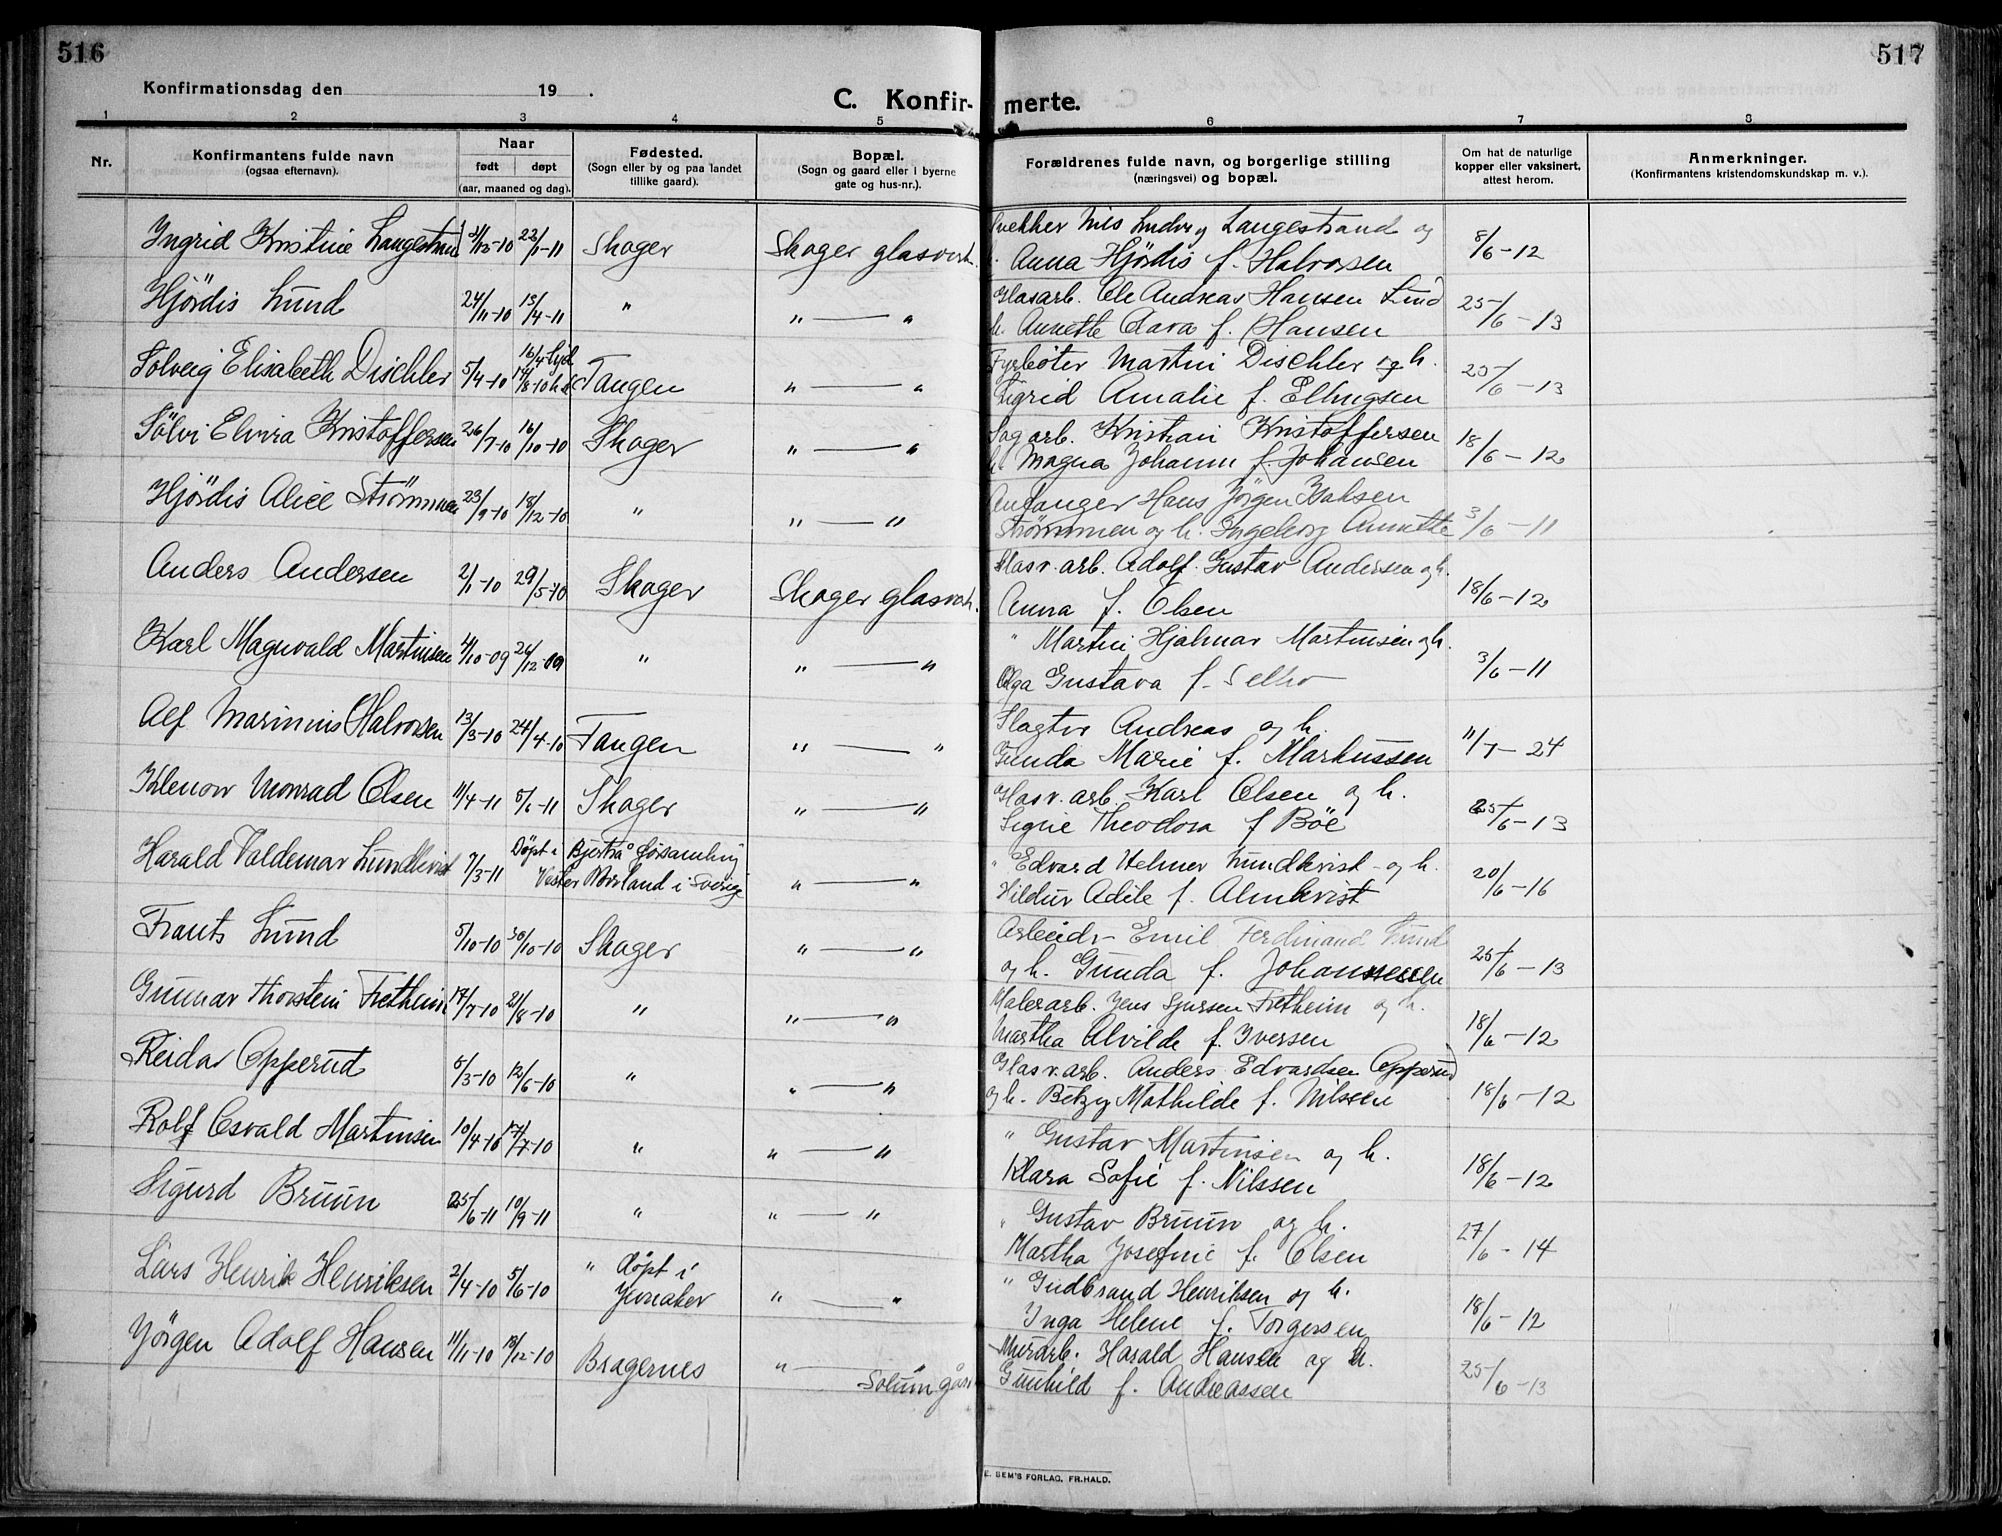 516
517
Konfirmationsdag den 19 .
C. Konfir- merte.
1 2 3 4 5 6 7 8
Nr.
Konfirmantens fulde navn
(ogsaa efternavn).
Naar
født døpt
(aar, maaned og dag).
Fødested.
(Sogn eller by og paa landet
tillike gaard).
Bopæl.
(Sogn og gaard eller i byerne
gate og hus-nr.).
Forældrenes fulde navn, og borgerlige stilling
(næringsvei) og bopæl.
Om hat de naturlige
kopper eller vaksinert,
attest herom.
Anmerkninger.
(Konfirmantens kristendomskundskap m. v.).
Ingrid Kristine Langestrand 22/1-11 Skoger Skoger glasverk. Nils Ludvig Langestrand og
h. Anna Hjördis f. Halvorsen 8/6-12
Hjördis Lund 24/11-10 13/4-11 " " — " Glasarb. Ole Andreas Hansen Lund
h. Annette Clara f. Hansen 25/6-13
Solveig Elisabeth Dischler 5/4-10 16/4 14/8-10 Tangen " — " Fyrböter Martin Dischler og h.
Sigrid Amalie f. Ellingsen 25/6-13
Sölvi Elvira Kristoffersen 26/7-10 16/10-10 Skoger " — " Sagarb. Kristian Kristoffersen
h. Magna Johanne f. Johansen 18/6-12
Hjördis Alice Strömmen 23/9-10 18/12-10 " " — " Anfanger Hans Jörgen Isaksen
Strömmen og h. Ingeborg Annette 3/6-11
Anders Andersen 2/1-10 29/5-10 Skoger Skoger glasverk. Glasv.arb. Adolf Gustav Andersen og h.
Anna f. Olsen 18/6-12
Karl Magnvald Martinsen 4/10-09 26/12-09 " " — " " Martin Hjalmar Martinsen og h.
Olga Gustava f. 3/6-11
Alf Marinius Halvorsen 13/3-10 24/4-10 Tangen " — " Slagter Andreas og h.
Gunda Marie f. Markussen 11/7-24
Klenow Monrad Olsen 11/4-11 5/6-11 Skoger " — " Glasv.arb. Karl Olsen og h.
Signe Theodora f Böe 25/6-13
Harald Valdemar Lundkvist 7/3-11 Döpt i församling
Vester Norrland i Sverige " — " " Edvard Helmer Lundkvist og h.
Hildur Adéle f. Almkvist 20/6-16
Frants Lund 5/10-10 30/10-10 Skoger " — " Arbeider Emil Ferdinand Lund
og h. Gunda f. Johannessen 25/6-13
Gunnar Thorstein Fretheim 17/7-10 21/8-10 " " — " Malerarb. Jens Sjursen Fretheim og h.
Martha Alvilde f. Iversen 18/6-12
Reidar Opperud 8/3-10 12/6-10 " " — " Glasv.arb. Anders Edvardsen Opperud
og h. Betzy Mathilde f. Nilssen 18/6-12
Rolf Osvald Martinsen 10/4-10 17/7-10 " " — " " Gustav Martinsen og h.
Klara Sofie f. Nilssen 18/6-12
Sigurd Bruun 25/6-11 10/9-11 " " — " " Gustav Bruun og h.
Martha Josefine f. Olsen 27/6-14
Lars Henrik Henriksen 2/4-10 5/6-10 " döpt i
Jevnaker " — " " Gudbrand Henriksen og h.
Inga Helene f. Torgersen 18/6-12
Jörgen Adolf Hansen 11/11-10 13/12-10 Bragernes " — "
Solum Murarb. Harald Hansen og h.
Gunhild f. Andreassen 25/6-13
E. SEM'S FORLAG, FR.HALD.